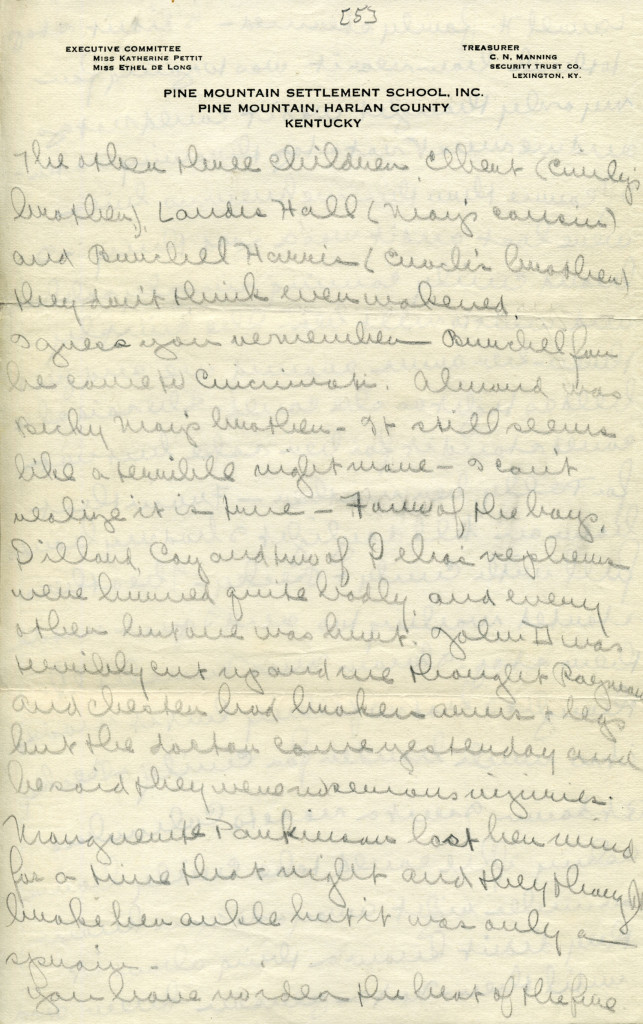 [5]
EXECUTIVE COMMITTEE
MISS KATHERINE PETTIT
MISS ETHEL DE LONG
TREASURER
C. N. MANNING
SECURITY TRUST CO.
LEXINGTON, KY.
PINE MOUNTAIN SETTLEMENT SCHOOL, INC.
PINE MOUNTAIN, HARLAN COUNTY
KENTUCKY
The other three children, Elbert (Curly's
brother), Landis Hall (May's cousin)
and Burchell Harris (Enoch's brother)
they don't think even wakened.
I guess you remember Burchel for
he came to Cincinnati. Almond was
Becky May's brother - It still seems
like a terrible night mare - I can't
realize it is true - Four of the boys,
Dillard, Coy and two of Delia's nephews
were burned quite badly, and every
other but one was hurt. John D was
terribly cut up and we thought Raymon
and Chester had broken arms & legs
but the doctor came yesterday and
he said they were no serious injuries.
Marguerite Parkinson lost her mind
for a time that night and they thought
broke her ankle but it was only a
sprain -
You have no idea the heat of the fire